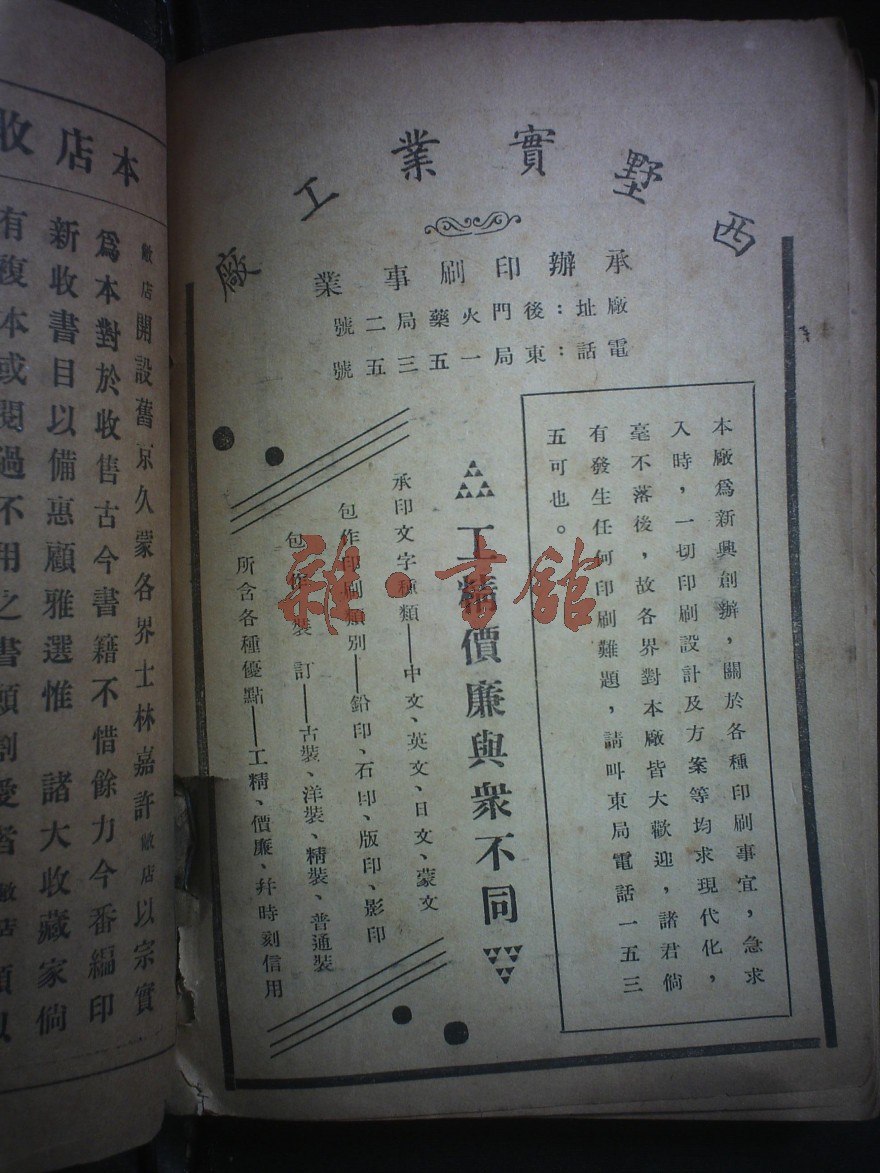 西墅實業工廠
承辦印刷事業
廠址：後門火藥局二號
電話：東局一五三五號
本廠爲新興創辦，關於各種印刷事宜，急求
入時，一切印刷設計及方案等均求現代化，
毫不落後，故各界對本廠皆大歡迎，諸君倘
有發生任何印刷難題，請叫東局電話一五三
五可也。
工精價廉與衆不同
承印文字種類——中文、英文、日文、蒙文
包作印刷類別——鉛印、石印、版印、影印
包作裝訂——古裝、洋裝、精裝、普通裝
所含各種優點——工精、價廉、幷時刻信用
雜·書館
本店收
敝店開設舊京久蒙各界士林嘉許敝店以宗實
爲本對於收售古今書籍不惜餘力今番編印
新收書目以備惠顧雅選惟 諸大收藏家倘
有複本或閱過不用之書願割愛者敝店